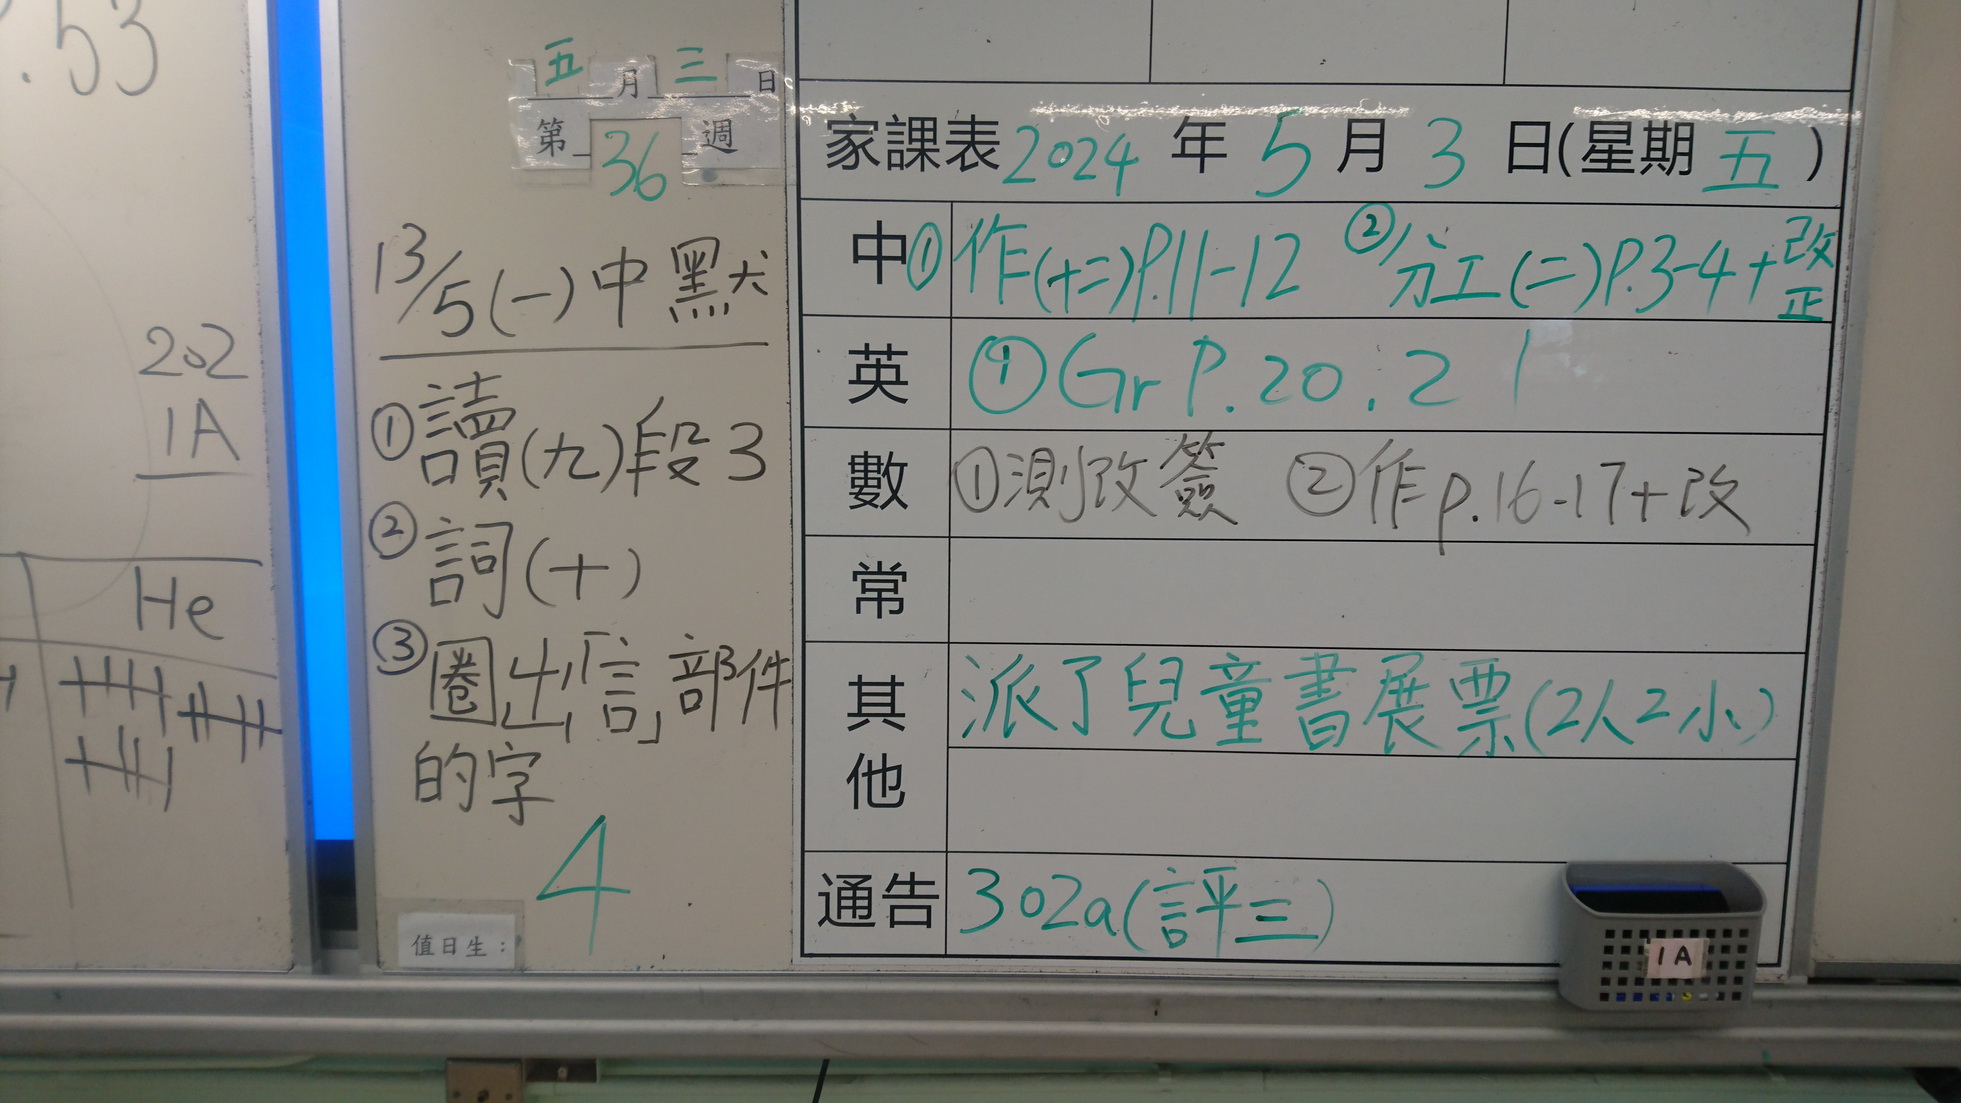 .53
202
1A
He
五月三日
第36週
13/5(一)中默
①讀(九)段3
②詞(十)
③圈出「言」部件
的字
4
值日生：
家課表2024年5月3日(星期五)
中①作(十二)P.11-12 ②分工(二)P.3-4+改正
英①Gr P.20.21
數①測改簽 ②作p.16-17+改
常
其他 派了兒童書展票(2人2小)
通告 302a(評三)
1A